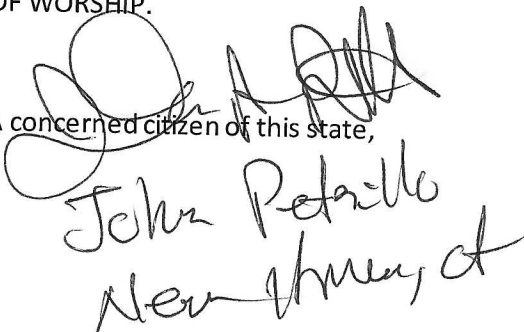 OF WORSHIP.
A concerned citizen of this state,
John Petrillo
New Haven, ct